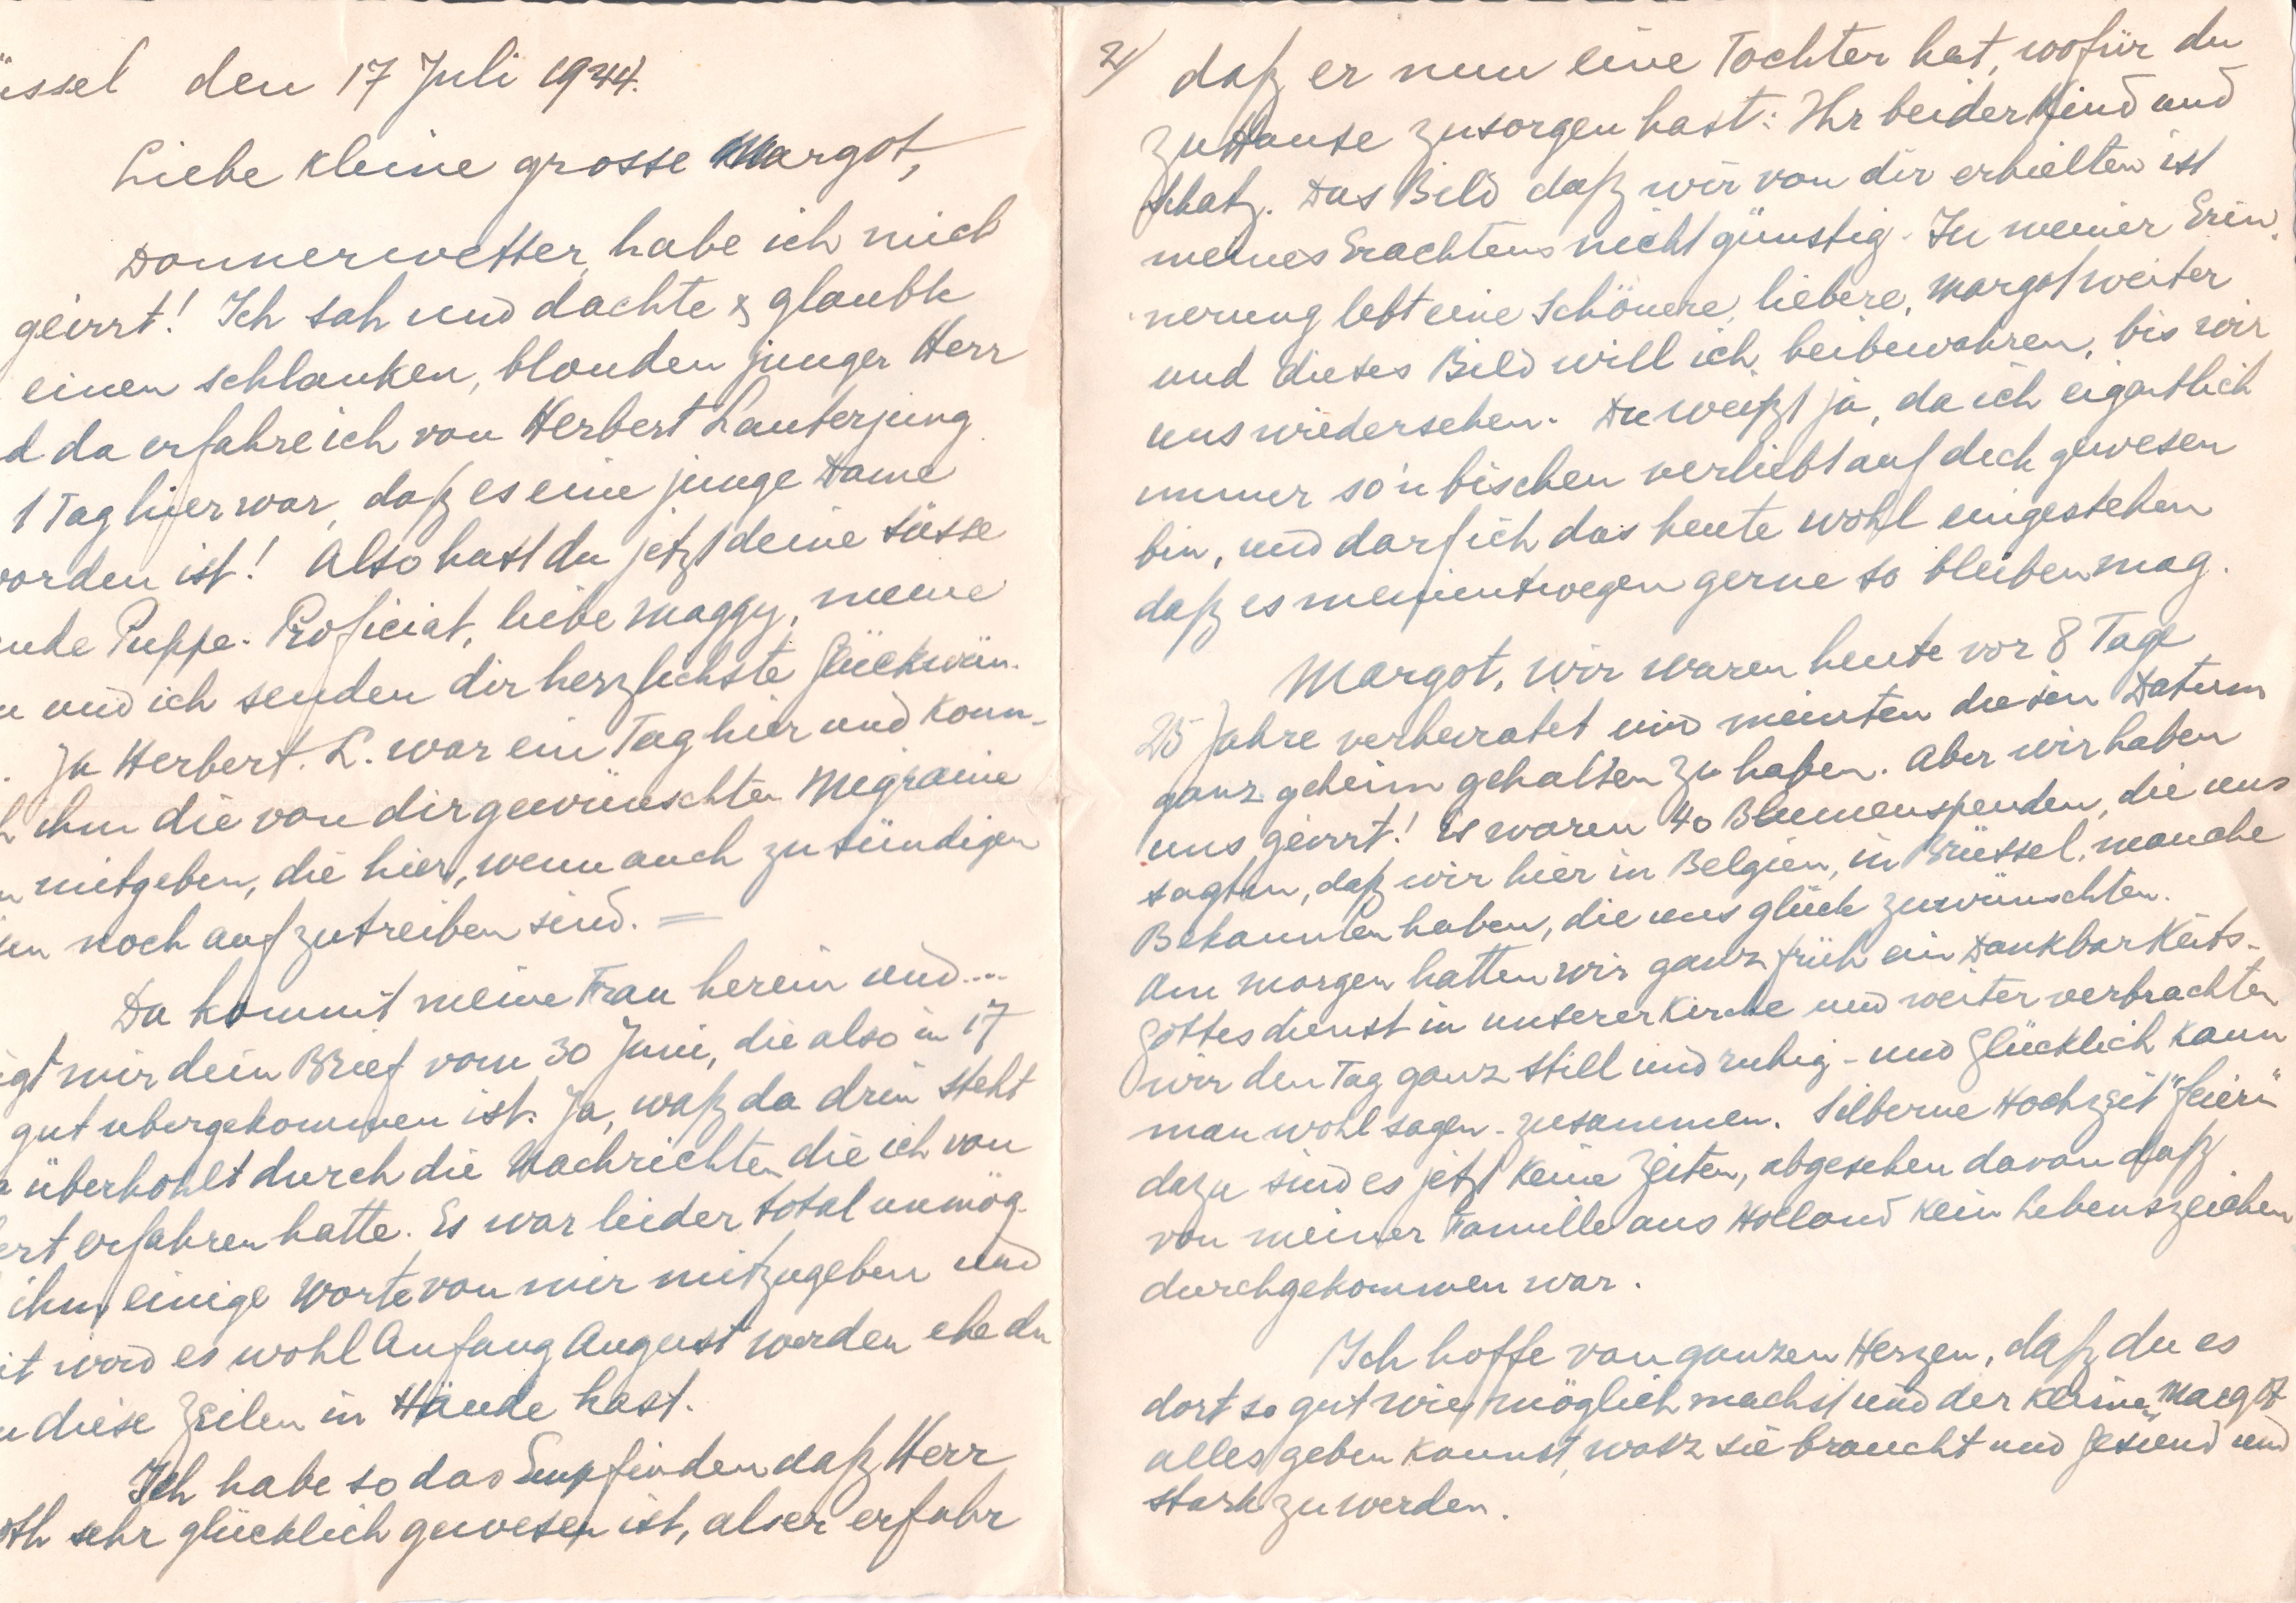 üssel den 17 Juli 1944.
Liebe kleine grosse Margot,
Donnerwetter, habe ich mich
geirrt! Ich sah und dachte & glaubte
einen schlanken, blonden junger Herr
d da erfahre ich von Herbert Lauterjung
1 Tag hier war, daß es eine junge Dame
worden ist! Also hast du jetzt deine süsse
nde Puppe. Proficiat, liebe Maggy, meine
u und ich senden dir herzlichste Glückwün-
. Ja Herbert. L. war ein Tag hier und konn-
h ihm die von dir gewünschten Migraine
n mitgeben, die hier, wenn auch zu sündigen
en noch aufzutreiben sind. =
Da kommt meine Frau herein und....
igt mir dein Brief vom 30 Juni, die also in 17
gut ubergekommen ist. Ja, waß da drin steht
a überhohlt durch die Nachrichten die ich von
ert erfahren hatte. Es war leider total unmög-
ihm einige Worte von mir mitzugeben und
it wird es wohl Anfang August werden ehe du
u diese Zeilen in Hände hast.
Ich habe so das Empfinden daß Herr
oth sehr glücklich gewesen ist, als er erfuhr
2/ daß er nun eine Tochter hat, wofür du
zu Hause zu sorgen hast: Ihr beider Kind und
Schatz. Das Bild daß wir von dir erhielten ist
meines Erachtens nicht günstig. In meiner Erin-
nerung lebt eine Schönere, liebere, Margot weiter
und dieses Bild will ich beibewahren, bis wir
uns wiedersehen. Du weißt ja, da ich eigentlich
immer so'n bischen verliebt auf dich gewesen
bin, und darf ich das heute wohl eingestehen
daß es meinentwegen gerne so bleiben mag.
Margot, wir waren heute vor 8 Tage
25 Jahre verheiratet und meinten diesen Datum
ganz geheim gehalten zu haben. Aber wir haben
uns geirrt! Es waren 40 Blumenspenden, die uns
sagten, daß wir hier in Belgien, in Brüssel, manche
Bekannten haben, die uns glück zuwünschten.
Am Morgen hatten wir ganz früh ein Dankbarkeits-
Gottesdienst in unserer Kirche und weiter verbrachten
wir den Tag ganz still und ruhig - und Glücklich kann
man wohl sagen - zusammen. Silberne Hochzeit "feiern"
dazu sind es jetzt keine Zeiten, abgesehen davon daß
von meiner Familie aus Holland kein Lebenszeichen
durchgekommen war.
Ich hoffe von ganzen Herzen, daß du es
dort so gut wie möglich machst und der kleinen Margot
alles geben kannst, wasz sie braucht und Gesund und
stark zu werden.